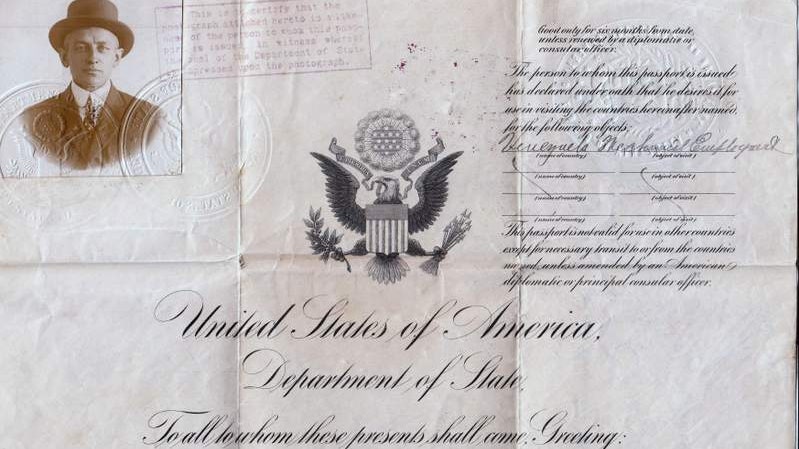 This is to certify that the
photograph attached hereto is a like-
ness of the person to whom this pass-
port is issued, in witness whereof
seal of the Department of State
impressed upon the photograph.
Good only for six months from date,
unless renewed by a diplomatic or
consular officer.
The person to whom this passport is issued
has declared under oath that he desires it for
use in visiting the countries hereinafter named,
for the following objects.
Venezuela Mechanic Employment
(name of country) (object of visit)
(name of country) (object of visit)
(name of country) (object of visit)
This passport is not valid for use in other countries
except for necessary transit to or from the countries
named, unless amended by an American
diplomatic or principal consular officer.
United States of America,
Department of State,
To all to whom these presents shall come, Greeting: